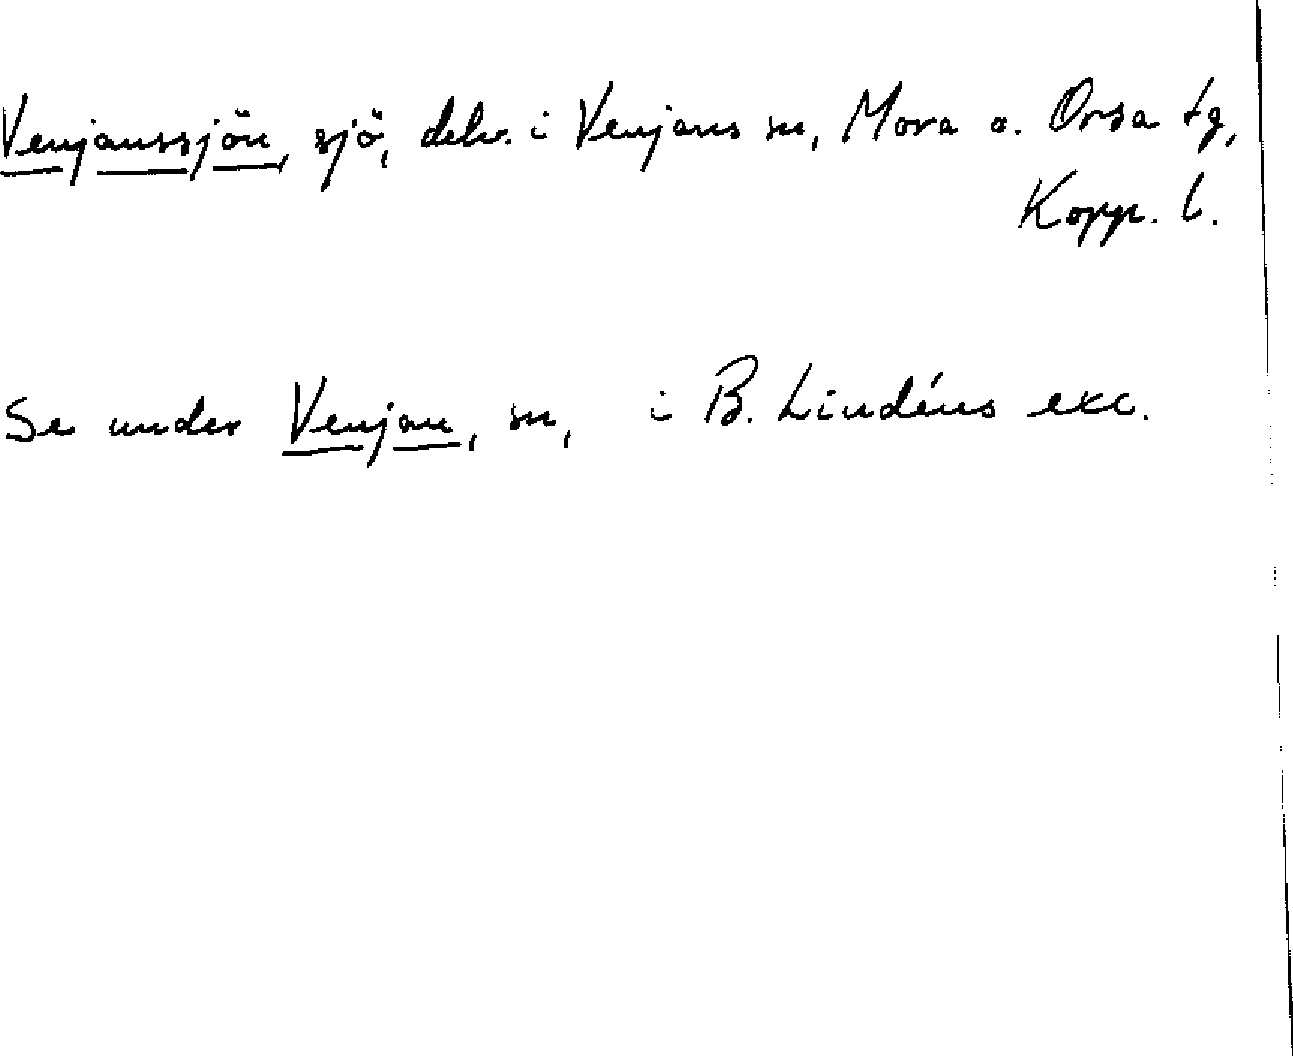 Venjanssjön, sjö, delv. i Venjans sn, Mora o. Orsa tg,
Kopp. l.
Se under Venjan, sn, i B. Lindéns exc.